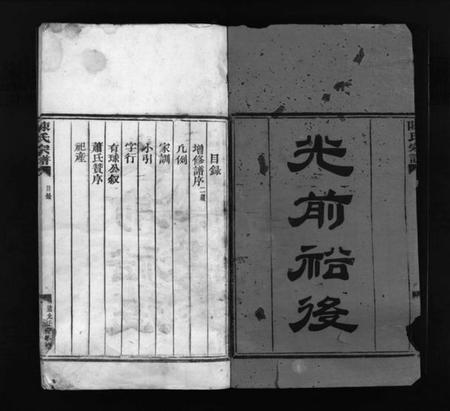 陳氏宗譜
光前裕後
目錄
增修譜序二篇
凡例
家訓
小引
字行
有球公叙
蕭氏贊序
祀產
陳氏宗譜
目錄